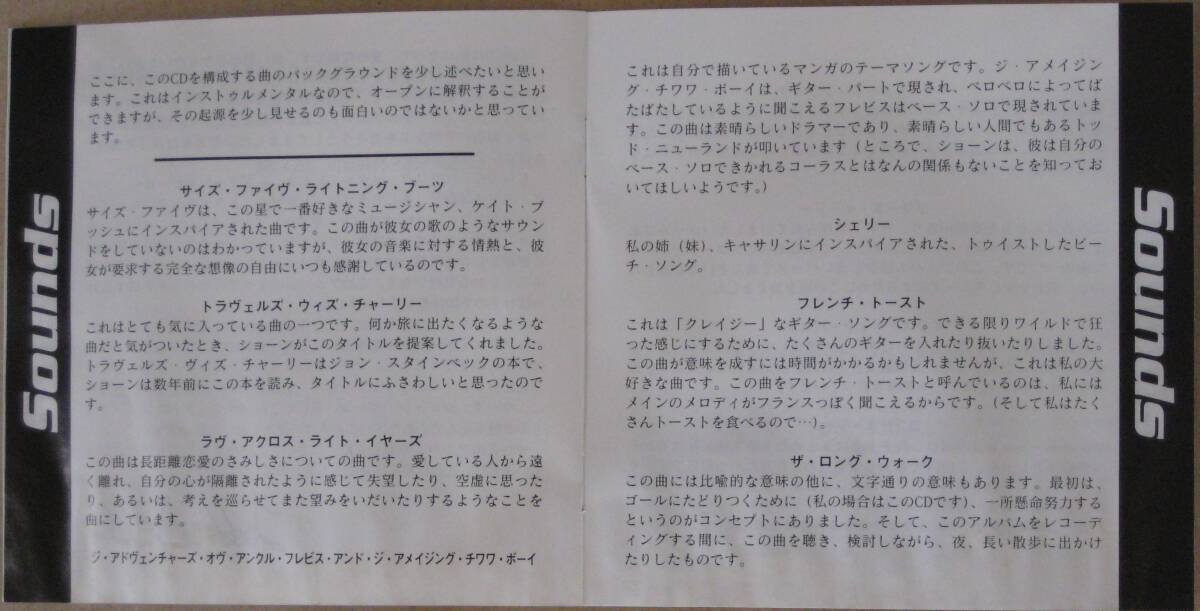 Sounds
ここに、このCDを構成する曲のバックグラウンドを少し述べたいと思い
ます。これはインストゥルメンタルなので、オープンに解釈することが
できますが、その起源を少し見せるのも面白いのではないかと思ってい
ます。
サイズ・ファイヴ・ライトニング・ブーツ
サイズ・ファイヴは、この星で一番好きなミュージシャン、ケイト・ブ
ッシュにインスパイアされた曲です。この曲が彼女の歌のようなサウン
ドをしていないのはわかっていますが、彼女の音楽に対する情熱と、彼
女が要求する完全な想像の自由にいつも感謝しているのです。
トラヴェルズ・ウィズ・チャーリー
これはとても気に入っている曲の一つです。何か旅に出たくなるような
曲だと気がついたとき、ショーンがこのタイトルを提案してくれました。
トラヴェルズ・ヴィズ・チャーリーはジョン・スタインベックの本で、
ショーンは数年前にこの本を読み、タイトルにふさわしいと思ったので
す。
ラヴ・アクロス・ライト・イヤーズ
この曲は長距離恋愛のさみしさについての曲です。愛している人から遠
く離れ、自分の心が隔離されたように感じて失望したり、空虚に思った
り、あるいは、考えを巡らせてまた望みをいだいたりするようなことを
曲にしています。
ジ・アドヴェンチャーズ・オヴ・アンクル・フレビス・アンド・ジ・アメイジング・チワワ・ボーイ
これは自分で描いているマンガのテーマソングです。ジ・アメイジン
グ・チワワ・ボーイは、ギター・パートで現され、ベロベロによってば
たばたしているように聞こえるフレビスはベース・ソロで現されていま
す。この曲は素晴らしいドラマーであり、素晴らしい人間でもあるトッ
ド・ニューランドが叩いています（ところで、ショーンは、彼は自分の
ベース・ソロできかれるコーラスとはなんの関係もないことを知ってお
いてほしいようです。）
シェリー
私の姉（妹）、キャサリンにインスパイアされた、トゥイストしたビー
チ・ソング。
フレンチ・トースト
これは「クレイジー」なギター・ソングです。できる限りワイルドで狂
った感じにするために、たくさんのギターを入れたり抜いたりしました。
この曲が意味を成すには時間がかかるかもしれませんが、これは私の大
好きな曲です。この曲をフレンチ・トーストと呼んでいるのは、私には
メインのメロディがフランスっぽく聞こえるからです。（そして私はたく
さんトーストを食べるので…）。
ザ・ロング・ウォーク
この曲には比喩的な意味の他に、文字通りの意味もあります。最初は、
ゴールにたどりつくために（私の場合はこのCDです）、一所懸命努力する
というのがコンセプトにありました。そして、このアルバムをレコーデ
ィングする間に、この曲を聴き、検討しながら、夜、長い散歩に出かけ
たりしたものです。
Sounds